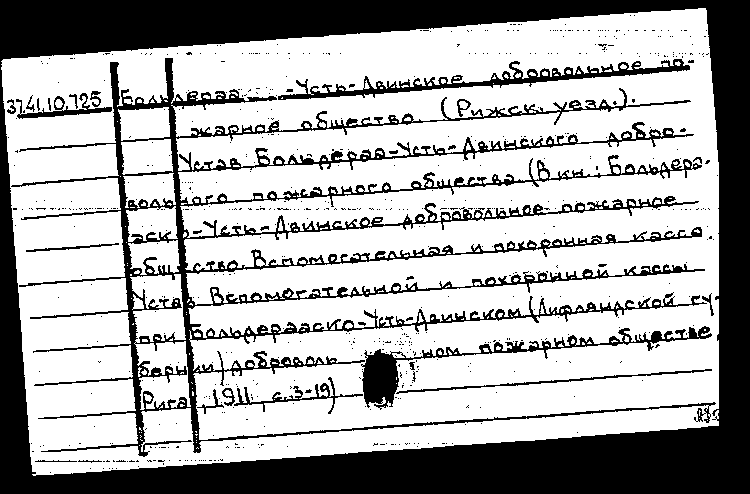 37.41.10.725 Больдераа -Усть-Двинское добровольное по-
жарное общество (Рижск. уезд.).
Устав Больдераа-Усть-Двинского добро-
вольного пожарного общества (В кн.: Больдера-
аско-Усть-Двинское добровольное пожарное
общество. Вспомогательная и похоронная касса.
Устав Вспомогательной и похоронной кассы
при Больдерааско-Усть-Двинском (Лифляндской гу-
бернии) доброволь ном пожарном обществе.
Рига, 1911, с. 3-19)